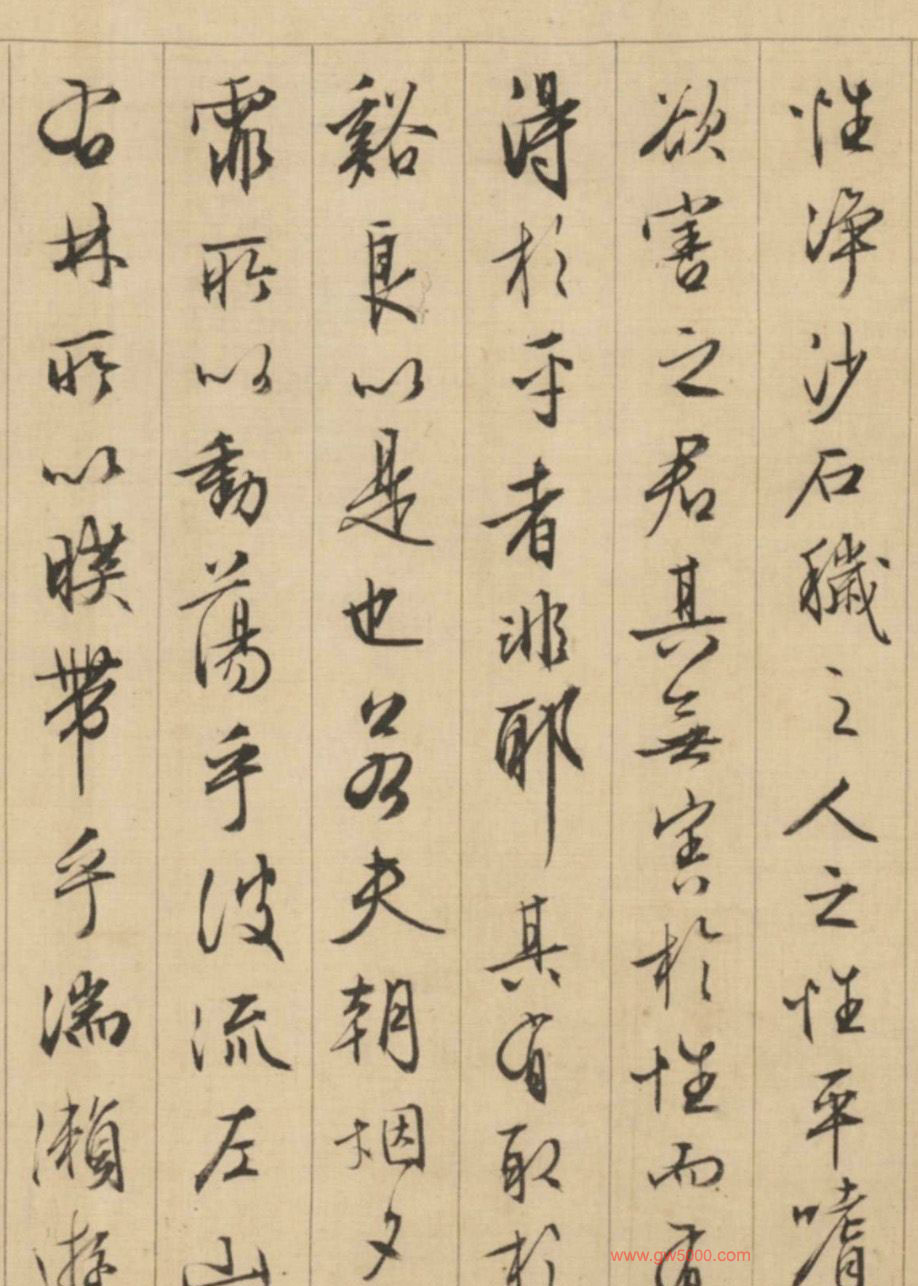 性浄沙石穢之人之性平嗜
欲害之君其無害於性而有
得於平者非耶其有取於
谿良以是也若夫朝烟夕
霏所以動蕩乎波流左山
右林所以暎帶乎湍瀨游
www.gw5000.com